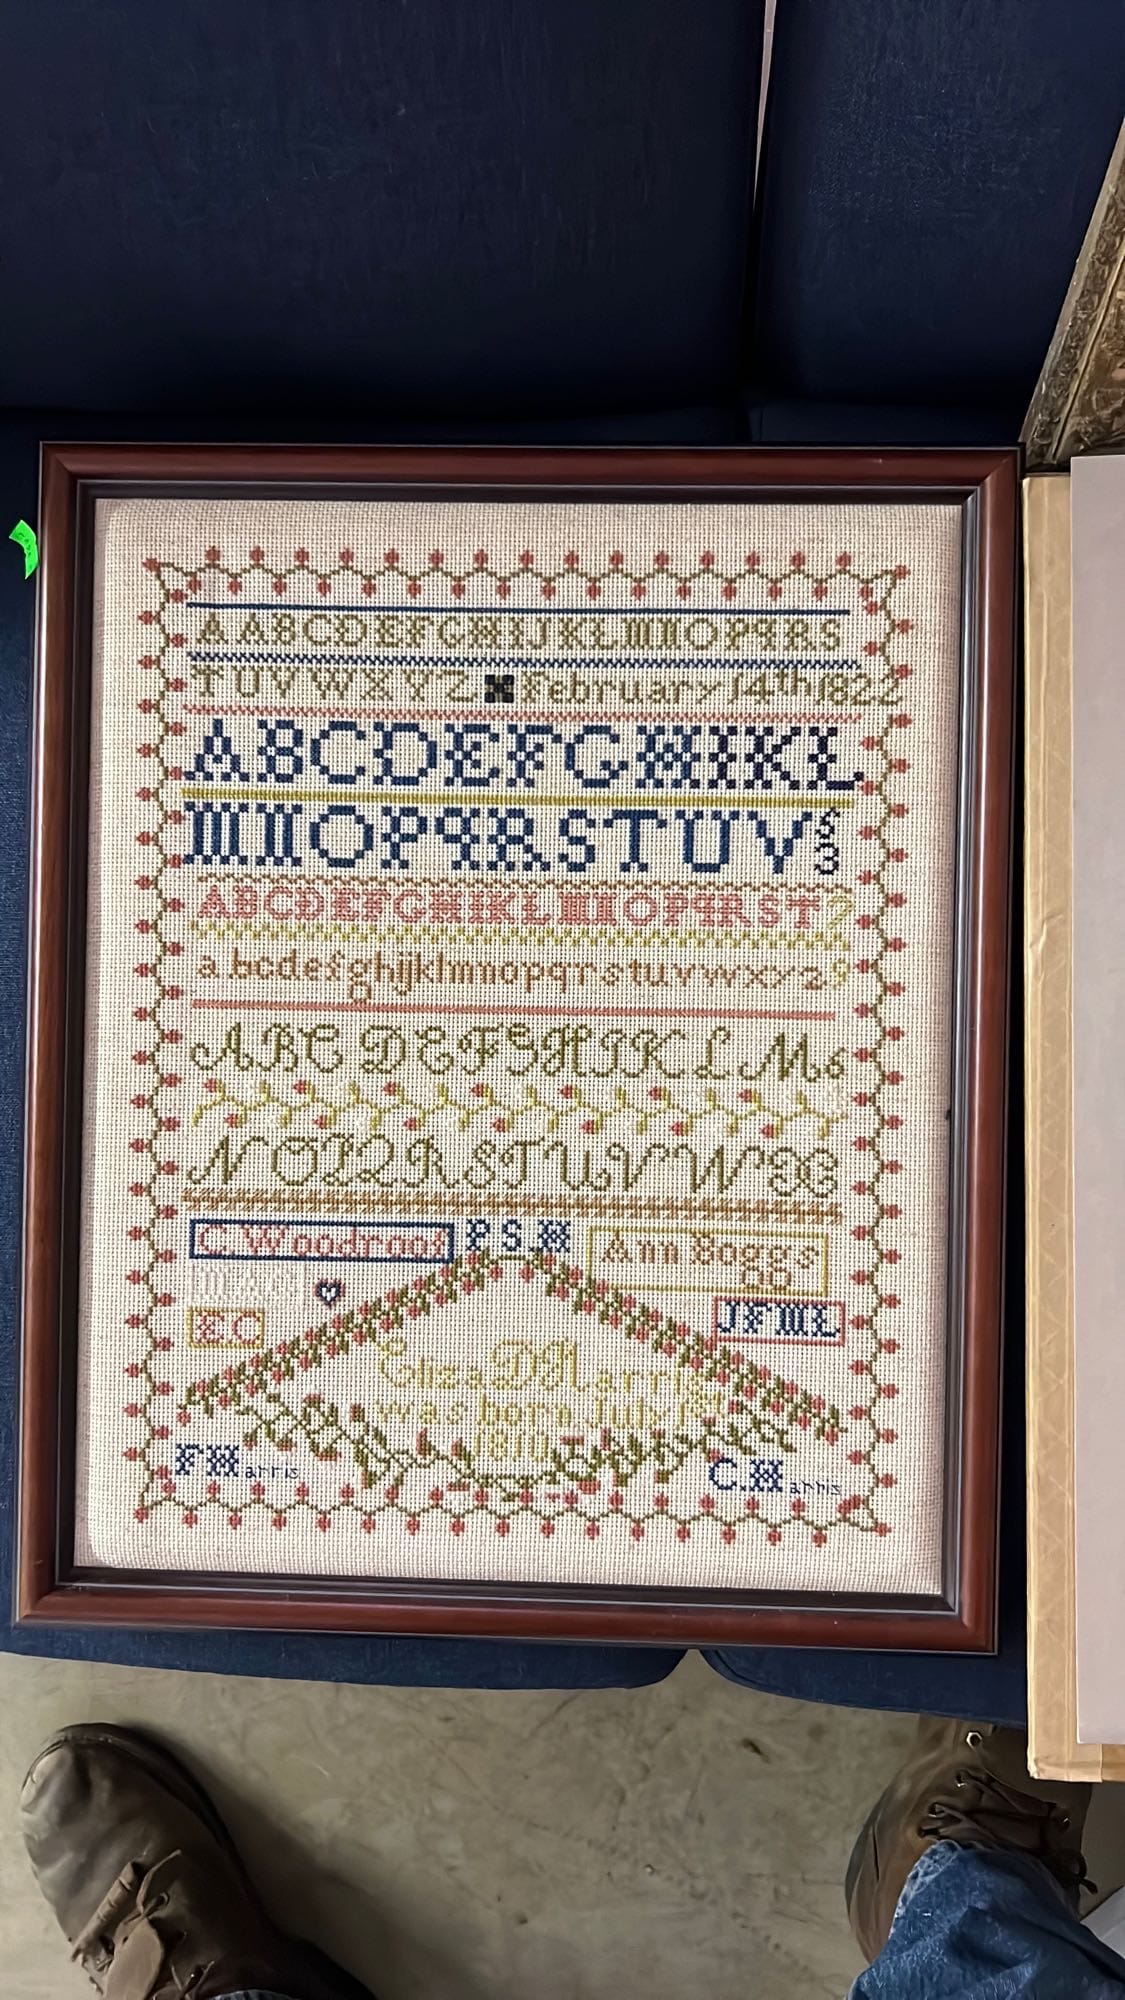 AABCDEFGHIJKLMNOPQRS
TUVWXYZ February 14th 1822
ABCDEFGHIKL
MNOPQRSTUV &
3
ABCDEFGHIKLMNOPQRST 2
abcdefghijklmnopqrstuvwxyz 9
ABCDEFGHIKLM 6
NOPQRSTUVWX
C Woodroof PSW Ann Boggs
EC JFML
Eliza D Harris
was born July 1st
1810
F Harris C. Harris